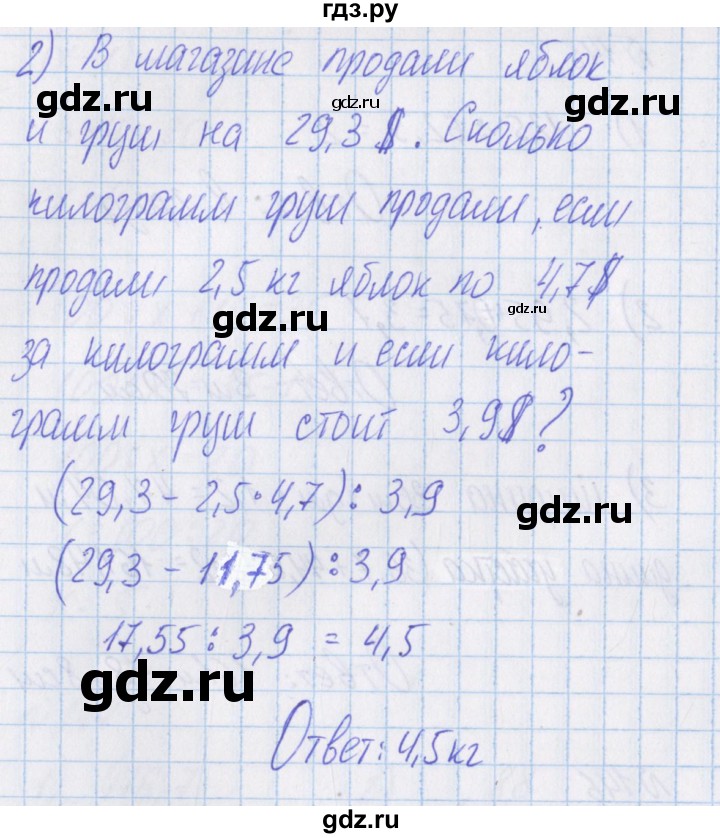 гдз.ру
2) В магазине продали яблок
gdz.ru gdz.ru gdz.ru
и груш на 29,3 $. Сколько
килограмм груш продали, если
продали 2,5 кг яблок по 4,7$
gdz.ru gdz.ru
за килограмм и если кило-
грамм груш стоит 3,9$?
(29,3 - 2,5·4,7) : 3,9
gdz.ru
(29,3 - 11,75) : 3,9
17,55 : 3,9 = 4,5
gdz.ru
Ответ: 4,5 кг
gdz.ru
gdz.ru